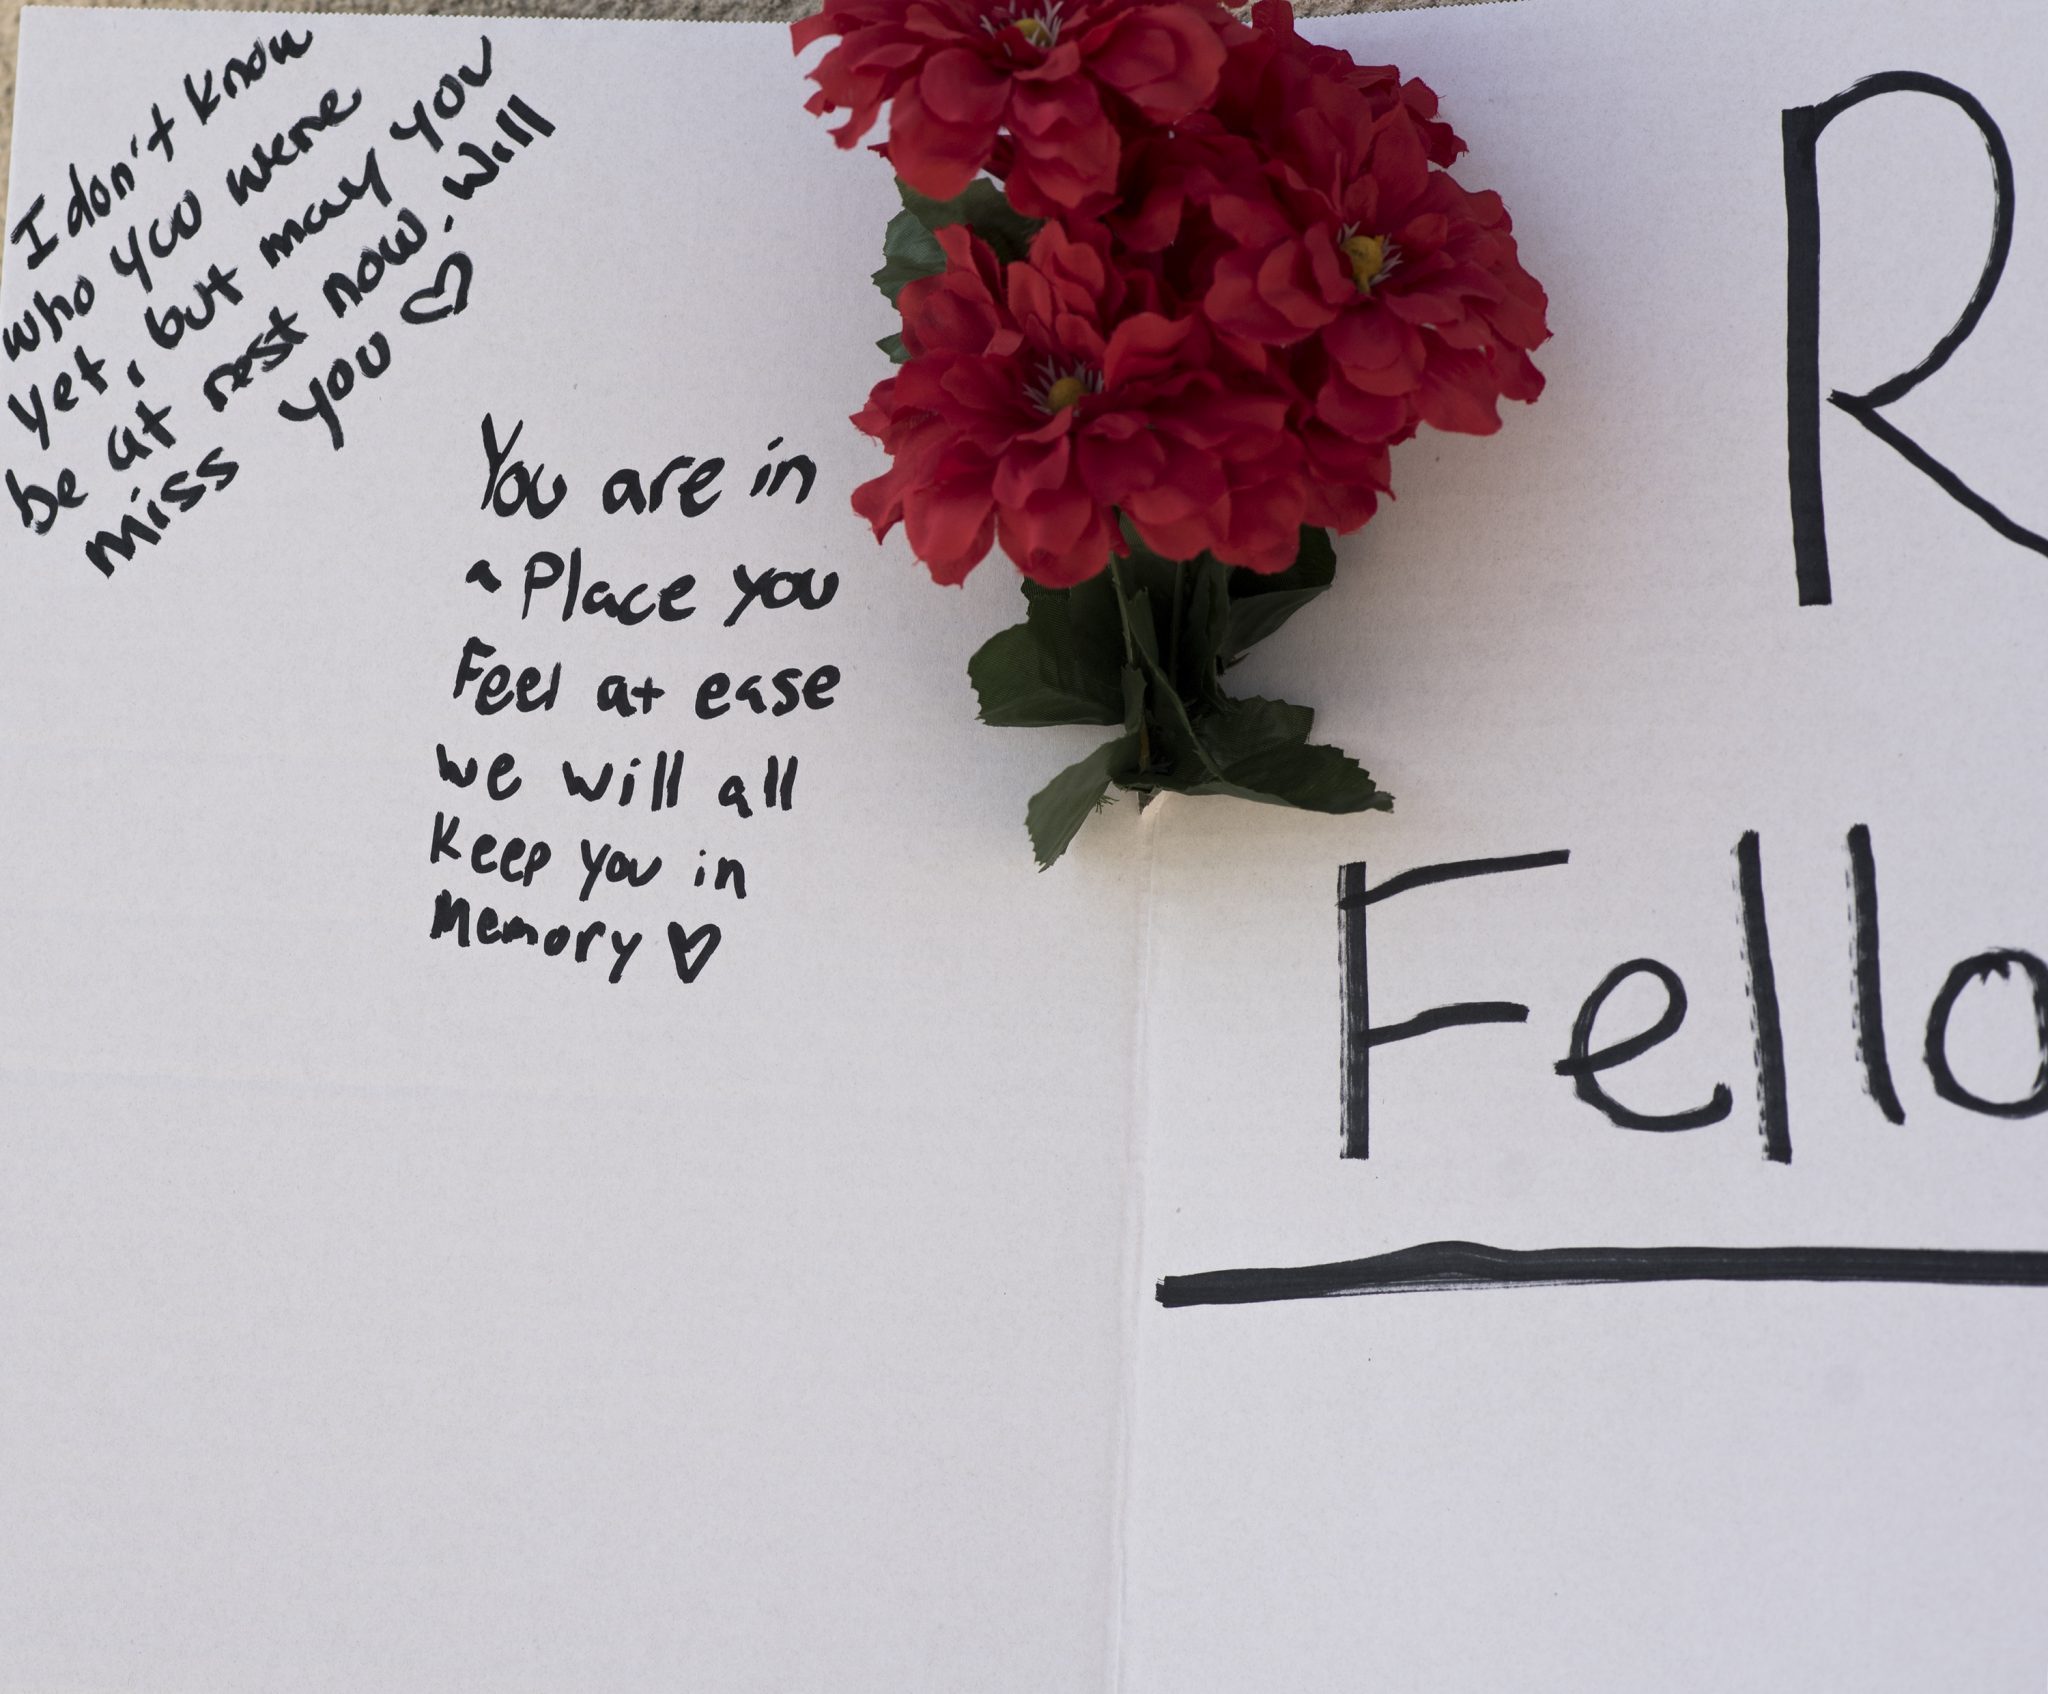 I don't know
who you were
yet, but may you
be at rest now. Will
miss you ♡
You are in
a Place you
Feel at ease
we will all
Keep you in
Memory ♡
R
Fello